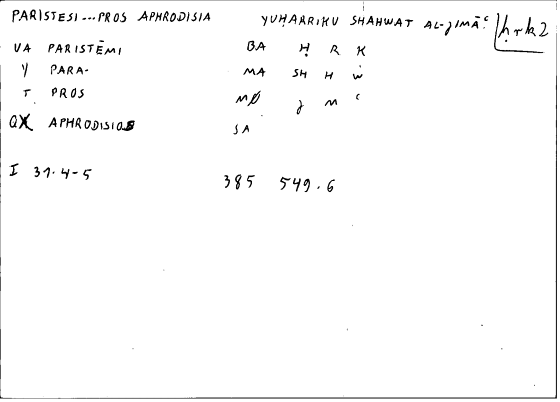 PARISTESI...PROS APHRODISIA YUḤARRIKU SHAHWAT AL-JIMĀʿ ḥrk2
VA PARISTĒMI BA Ḥ R K
Y PARA- MA SH H W
T PROS M J M ʿ
Q APHRODISIOS SA
I 31.4-5 385 549.6